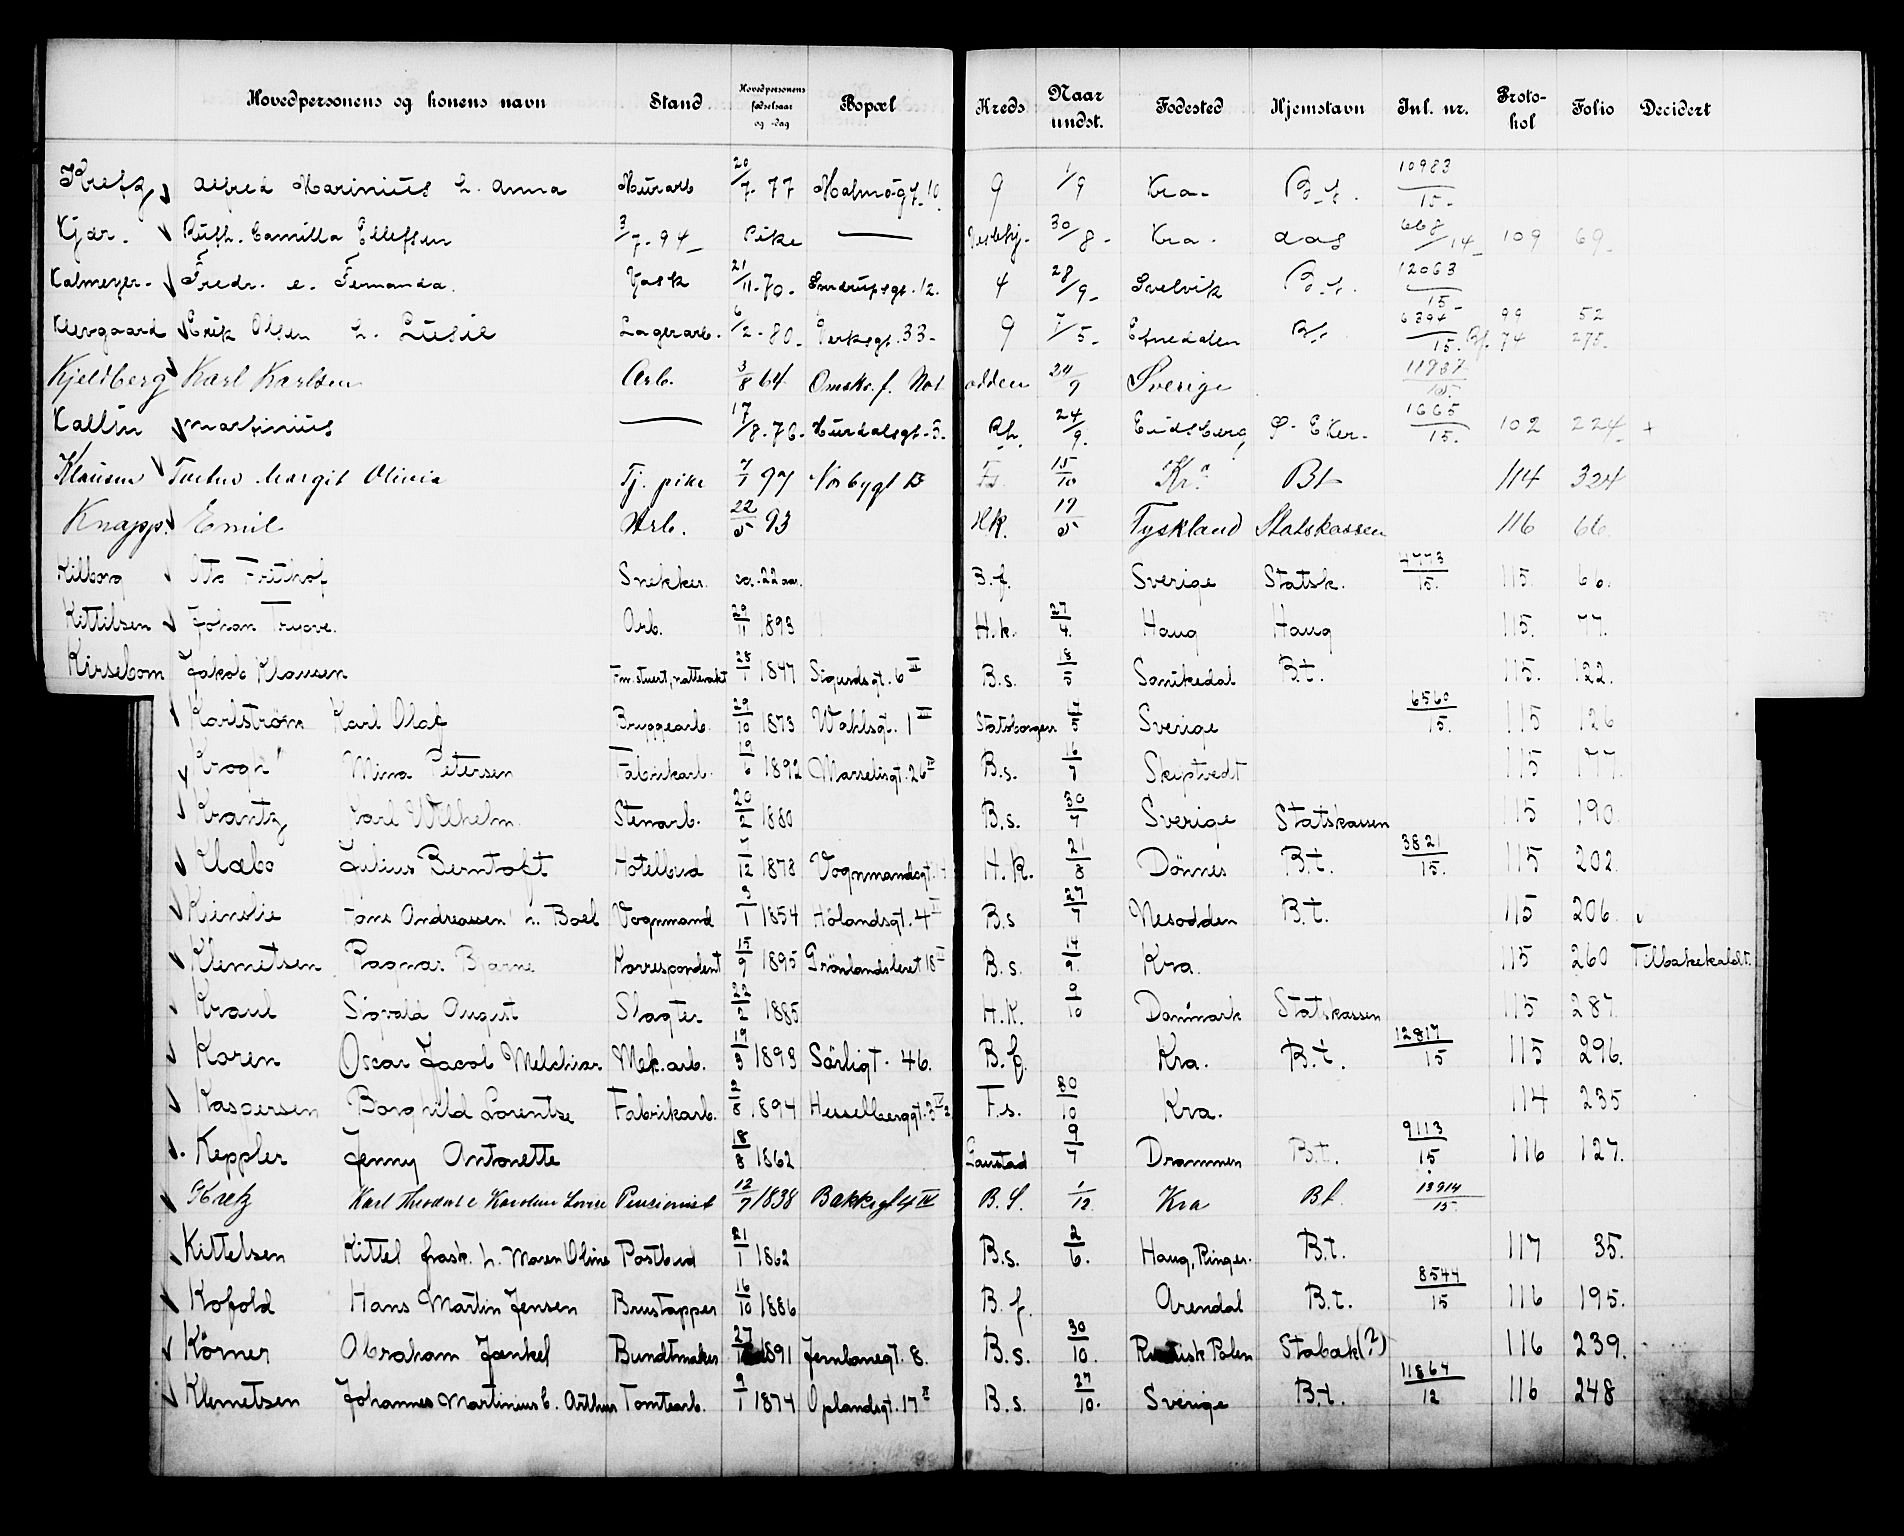 Hovedpersonens og konens navn Stand Hovedpersonens fødselsaar og -dag Bopæl Kreds Naar undst. Fødested Hjemstavn Jnl. nr. Protokol Folio Decidert
Kretz Alfred Marinius h. Anna Murarb 20/7- 77 Malmøgt. 10. 9 1/9 Kra- B.t. 10983/15-
Kjær. Ruth. Camilla Ellefsen 3/7-94- Pike — 30/8- Kra- Aas 668/14- 109 69-
Kalmeyer- Fredr. e. Fernanda. Vask 21/11-70- Sverdrupsgt. 12. 4 28/9- Svelvik B.t. 12063/15-
Klevgaard Erik Olsen h. Lusie Lagerarb. 6/2-80- Verksgt. 33- 9 7/5- Etnedalen Bt 6394/15. Bf. 99 74 52 275-
Kjeldberg Karl Karlsen Arb. 3/8 64 Omstr. f. Notodden 24/9 Sverige 11937/15.
Kallin Martinius — 17/8-76- Hurdalsgt. 3. Rh. 24/9. Eidsberg Ø. Eker- 1665/15. 102 224- +
Klausen Margit Olivia Tj. pike 7/1 97 Nordbygt 15 Fs. 15/10 "Kr." Bt 114 324
Knapp. Emil Arb. 22/5 93 H.K. 19/5 Tyskland Statskassen 116 66.
Kilborg Oto Frithof Snekker. ca. 22 aar. B.f. Sverige Statsk. 4773/15. 115. 66.
Kittilsen Johan Trygve. Arb. 29/11 1893 H.k. 27/4. Haug Haug 115. 77.
Kirsebom Jakob Klausen Fm. stuert, nattevakt 28/1 1847 Sigurdsgt. 6 II B.s. 18/5 Sanikedal B.t. 115. 122.
Karlstrøm Karl Olaf Bryggearb. 29/10 1873 Wahlsgt. 1 III Statsborger 14/5 Sverige 6560/15. 115 126
Krogh Mina Petersen Fabrikarb. 19/6 1892 Marselisgt. 26 IV B.s. 16/7 Skiptvedt 115 177.
Krantz Karl Wilhelm. Stenarb. 20/2 1880 B.s. 30/7 Sverige Statskassen 115 190.
Klæbo Julius Berntoft Hotelbud 5/12 1878 Vognmandsgt. H.K. 21/8 Dønnes B.t. 3821/15. 115 202.
Kinelie Hans Andreassen h. Boel Vognmand 3/1 1854 Hølandsgt. 4 II B.s 27/7 Nesodden B.t. 115 206.
Klemetsen Ragnar Bjarne Korrespondent 15/9 1895 Grønlandsleret 18 B.s. 14/9. Kra. 115 260 Tilbakekaldt.
Kraul Sigvald August Slagter 22/2 1885 H.K. 9/10 Danmark Statskassen 115 287.
Karen Oscar Jacob Melchior Mek. arb. 19/3 1893 Sørligt. 46. B.f. Kra. B.t. 12817/15 115 296.
Kaspersen Borghild Lorentze Fabrikarb. 2/8 1894 Hesselberggt. 3 F.s. 30/10 Kra. 114 235
Keppler Jenny Antonette 18/8 1862 Gaustad 9/7 Drammen B.t. 9113/15 116 127.
Kretz Karl Theodor e Karoline Lovise Pensionist 12/7 1838 Bakkegt 4 IV B.S. 1/12. Kra Bt. 13914/15
Kittelsen Kittel frask. h. Maren Oline Postbud 21/1 1862 B.s. 2/6. Haug, Ringer. B.t. 117 35.
Kofold Hans Martin Jensen Brustapper 16/10 1886 B.f. Arendal B.t. 8544/15 116 195.
Körner Abraham Jankel Bundtmaker 27/ 1891 Jernbanegt. 8. B.s. 30/10. Russisk Polen Stabæk(?) 116 239.
Klemetsen Johannes Martinius E. Arthur Tomtearb. 9/1 1874 Oplandsgt. 17 II B.s. 27/10. Sverige B.t. 11864/12 116 248